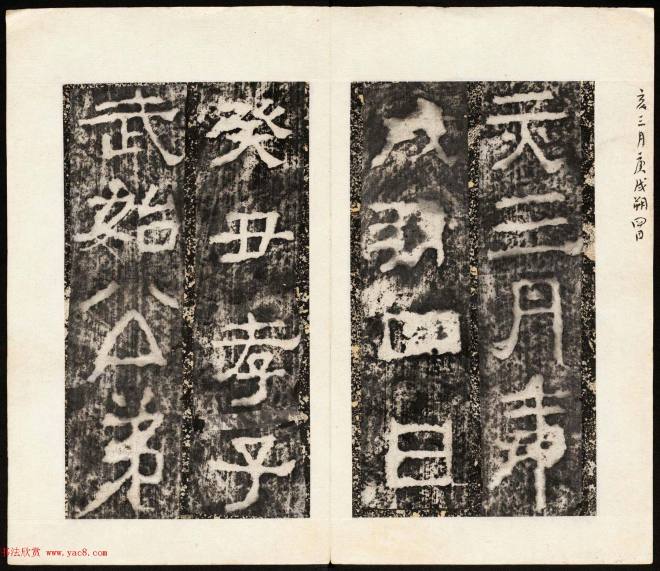 亥三月庚戌朔四日
亥三月庚
戌朔四日
癸丑孝子
武始公弟
书法欣赏 www.yac8.com